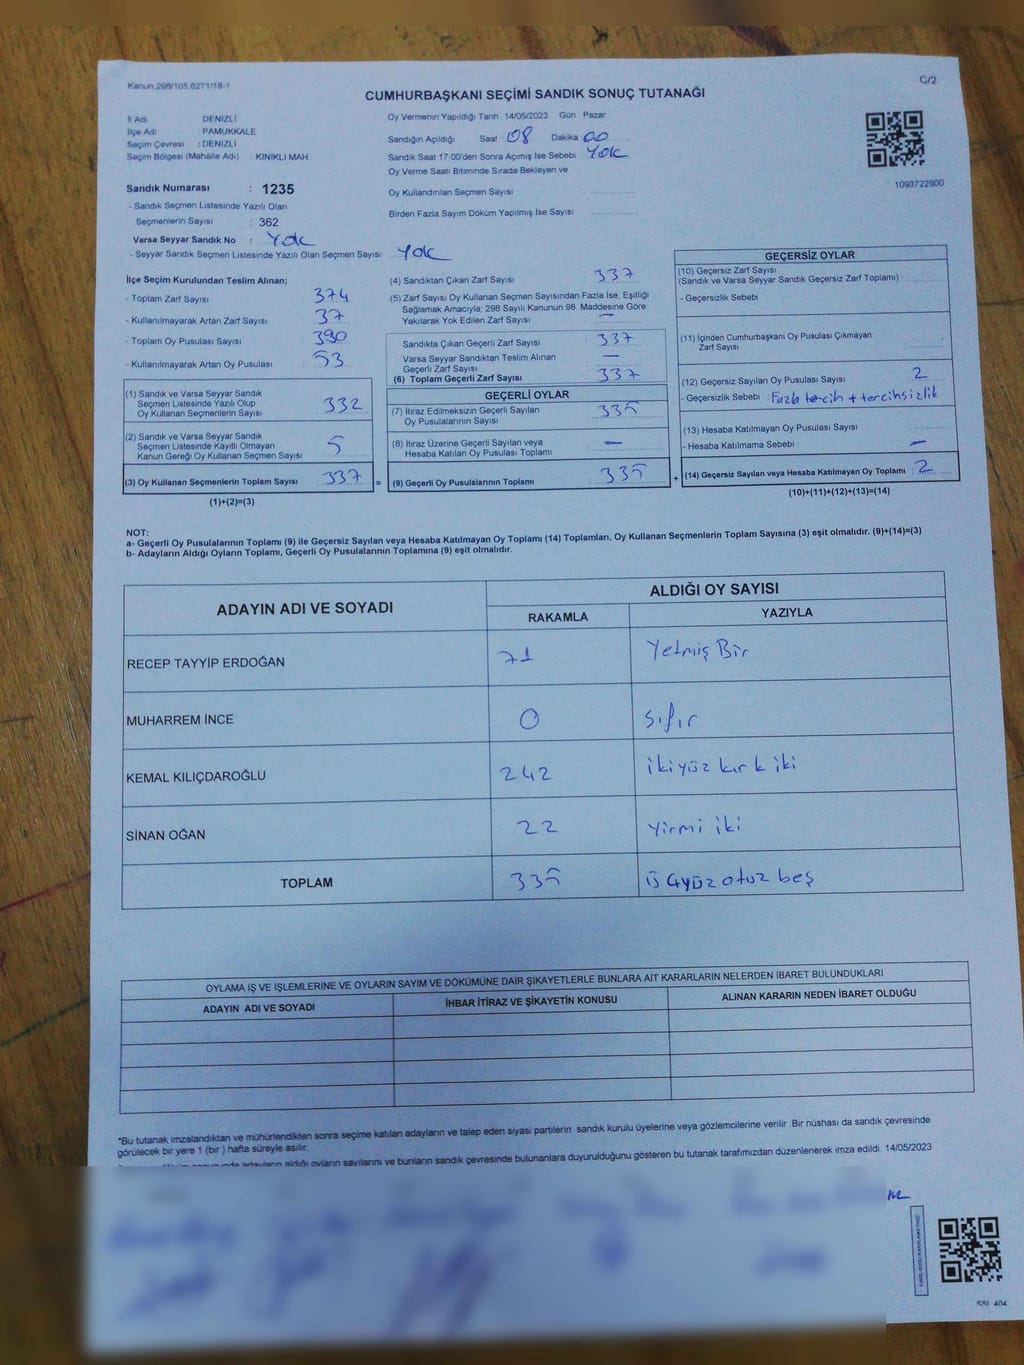 Kanun:298/105.6271/18-1
C/2
CUMHURBAŞKANI SEÇİMİ SANDIK SONUÇ TUTANAĞI
İl Adı DENİZLİ
İlçe Adı PAMUKKALE
Seçim Çevresi : DENİZLİ
Seçim Bölgesi (Mahalle Adı) KINIKLI MAH
Sandık Numarası : 1235
- Sandık Seçmen Listesinde Yazılı Olan
Seçmenlerin Sayısı : 362
Varsa Seyyar Sandık No : Yok
- Seyyar Sandık Seçmen Listesinde Yazılı Olan Seçmen Sayısı Yok
Oy Vermenin Yapıldığı Tarih 14/05/2023 Gün Pazar
Sandığın Açıldığı Saat 08 Dakika 00
Sandık Saat 17 00'den Sonra Açımış İse Sebebi Yok
Oy Verme Saati Bitiminde Sırada Bekleyen ve
Oy Kullandırılan Seçmen Sayısı
Birden Fazla Sayım Döküm Yapılmış İse Sayısı
1093722900
İlçe Seçim Kurulundan Teslim Alınan;
- Toplam Zarf Sayısı 374
- Kullanılmayarak Artan Zarf Sayısı 37
- Toplam Oy Pusulası Sayısı 390
- Kullanılmayarak Artan Oy Pusulası 53
(1) Sandık ve Varsa Seyyar Sandık
Seçmen Listesinde Yazılı Olup
Oy Kullanan Seçmenlerin Sayısı 332
(2) Sandık ve Varsa Seyyar Sandık
Seçmen Listesinde Kayıtlı Olmayan
Kanun Gereği Oy Kullanan Seçmen Sayısı 5
(3) Oy Kullanan Seçmenlerin Toplam Sayısı 337 =
(1)+(2)=(3)
(4) Sandıktan Çıkan Zarf Sayısı 337
(5) Zarf Sayısı Oy Kullanan Seçmen Sayısından Fazla İse, Eşitliği
Sağlamak Amacıyla; 298 Sayılı Kanunun 98. Maddesine Göre
Yakılarak Yok Edilen Zarf Sayısı —
Sandıkta Çıkan Geçerli Zarf Sayısı 337
Varsa Seyyar Sandıktan Teslim Alınan
Geçerli Zarf Sayısı —
(6) Toplam Geçerli Zarf Sayısı 337
GEÇERLİ OYLAR
(7) İtiraz Edilmeksizin Geçerli Sayılan
Oy Pusulalarının Sayısı 335
(8) İtiraz Üzerine Geçerli Sayılan veya
Hesaba Katılan Oy Pusulası Toplamı —
(9) Geçerli Oy Pusulalarının Toplamı 335 +
GEÇERSİZ OYLAR
(10) Geçersiz Zarf Sayısı
(Sandık ve Varsa Seyyar Sandık Geçersiz Zarf Toplamı)
- Geçersizlik Sebebi
(11) İçinden Cumhurbaşkanı Oy Pusulası Çıkmayan
Zarf Sayısı
(12) Geçersiz Sayılan Oy Pusulası Sayısı 2
- Geçersizlik Sebebi : Fazla tercih + tercihsizlik
(13) Hesaba Katılmayan Oy Pusulası Sayısı
- Hesaba Katılmama Sebebi —
(14) Geçersiz Sayılan veya Hesaba Katılmayan Oy Toplamı : 2
(10)+(11)+(12)+(13)=(14)
NOT:
a- Geçerli Oy Pusulalarının Toplamı (9) ile Geçersiz Sayılan veya Hesaba Katılmayan Oy Toplamı (14) Toplamları, Oy Kullanan Seçmenlerin Toplam Sayısına (3) eşit olmalıdır. (9)+(14)=(3)
b- Adayların Aldığı Oyların Toplamı, Geçerli Oy Pusulalarının Toplamına (9) eşit olmalıdır.
ADAYIN ADI VE SOYADI ALDIĞI OY SAYISI
RAKAMLA YAZIYLA
RECEP TAYYİP ERDOĞAN 71 Yetmiş Bir
MUHARREM İNCE 0 sıfır
KEMAL KILIÇDAROĞLU 242 ikiyüz kırk iki
SİNAN OĞAN 22 Yirmi iki
TOPLAM 335 üçyüz otuz beş
OYLAMA İŞ VE İŞLEMLERİNE VE OYLARIN SAYIM VE DÖKÜMÜNE DAİR ŞİKAYETLERLE BUNLARA AİT KARARLARIN NELERDEN İBARET BULUNDUKLARI
ADAYIN ADI VE SOYADI İHBAR İTİRAZ VE ŞİKAYETİN KONUSU ALINAN KARARIN NEDEN İBARET OLDUĞU
*Bu tutanak imzalandıktan ve mühürlendikten sonra seçime katılan adayların ve talep eden siyasi partilerin sandık kurulu üyelerine veya gözlemcilerine verilir Bir nüshası da sandık çevresinde
görülecek bir yere 1 (bir ) hafta süreyle asılır.
adayların aldığı oyların sayılarını ve bunların sandık çevresinde bulunanlara duyurulduğunu gösteren bu tutanak tarafımızdan düzenlenerek imza edildi. 14/05/2023